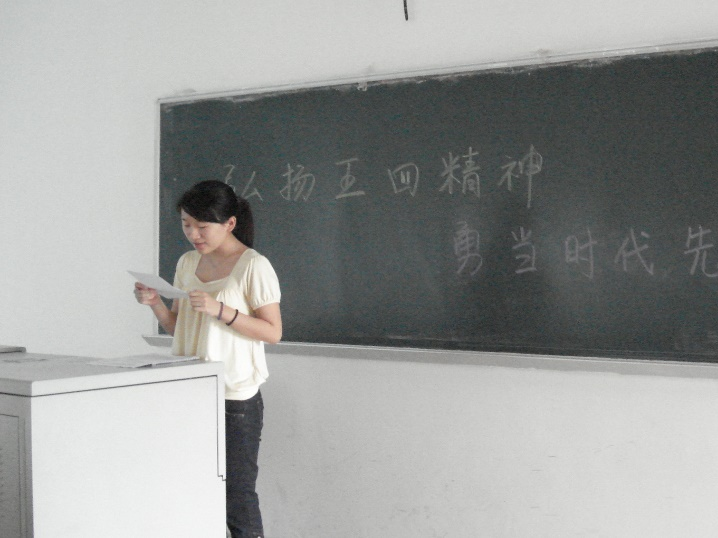 弘扬王回精神
勇当时代先